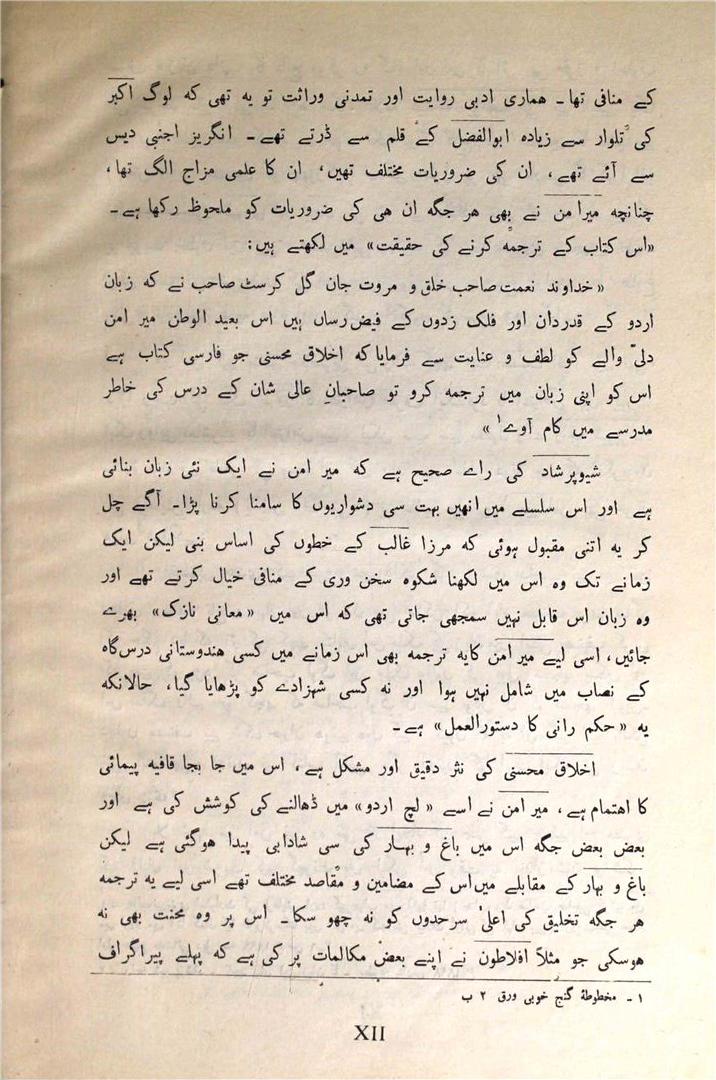 کے منافی تھا۔ ہماری ادبی روایت اور تمدنی وراثت تو یہ تھی کہ لوگ اکبر
کی تلوار سے زیادہ ابوالفضل کے قلم سے ڈرتے تھے۔ انگریز اجنبی دیس
سے آئے تھے، ان کی ضروریات مختلف تھیں، ان کا علمی مزاج الگ تھا،
چنانچہ میرامن نے بھی ہر جگہ ان ہی کی ضروریات کو ملحوظ رکھا ہے۔
«اس کتاب کے ترجمہ کرنے کی حقیقت» میں لکھتے ہیں:
«خداوند نعمت صاحب خلق و مروت جان گل کرسٹ صاحب نے کہ زبان
اردو کے قدردان اور فلک زدوں کے فیض رساں ہیں اس بعید الوطن میر امن
دلیّ والے کو لطف و عنایت سے فرمایا کہ اخلاق محسنی جو فارسی کتاب ہے
اس کو اپنی زبان میں ترجمہ کرو تو صاحبانِ عالی شان کے درس کی خاطر
مدرسے میں کام آوے۱ »
شیوپرشاد کی رائے صحیح ہے کہ میر امن نے ایک نئی زبان بنائی
ہے اور اس سلسلے میں انھیں بہت سی دشواریوں کا سامنا کرنا پڑا۔ آگے چل
کر یہ اتنی مقبول ہوئی کہ مرزا غالب کے خطوں کی اساس بنی لیکن ایک
زمانے تک وہ اس میں لکھنا شکوہ سخن وری کے منافی خیال کرتے تھے اور
وہ زبان اس قابل نہیں سمجھی جاتی تھی کہ اس میں «معانی نازک» بھرے
جائیں، اسی لیے میر امن کا یہ ترجمہ بھی اس زمانے میں کسی ہندوستانی درس گاہ
کے نصاب میں شامل نہیں ہوا اور نہ کسی شہزادے کو پڑھایا گیا، حالانکہ
یہ «حکم رانی کا دستورالعمل» ہے۔
اخلاق محسنی کی نثر دقیق اور مشکل ہے، اس میں جا بجا قافیہ پیمائی
کا اہتمام ہے، میر امن نے اسے «لچ اردو» میں ڈھالنے کی کوشش کی ہے اور
بعض بعض جگہ اس میں باغ و بہار کی سی شادابی پیدا ہوگئی ہے لیکن
باغ و بہار کے مقابلے میں اس کے مضامین و مقاصد مختلف تھے اسی لیے یہ ترجمہ
ہر جگہ تخلیق کی اعلیٰ سرحدوں کو نہ چھو سکا۔ اس پر وہ محنت بھی نہ
ہوسکی جو مثلاً افلاطون نے اپنے بعض مکالمات پر کی ہے کہ پہلے پیراگراف
۱ ۔ مخطوطۂ گنج خوبی ورق ۲ ب
XII